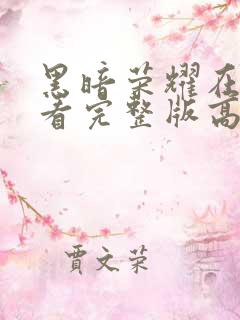 黑暗荣耀在
看完整版高
贾文荣